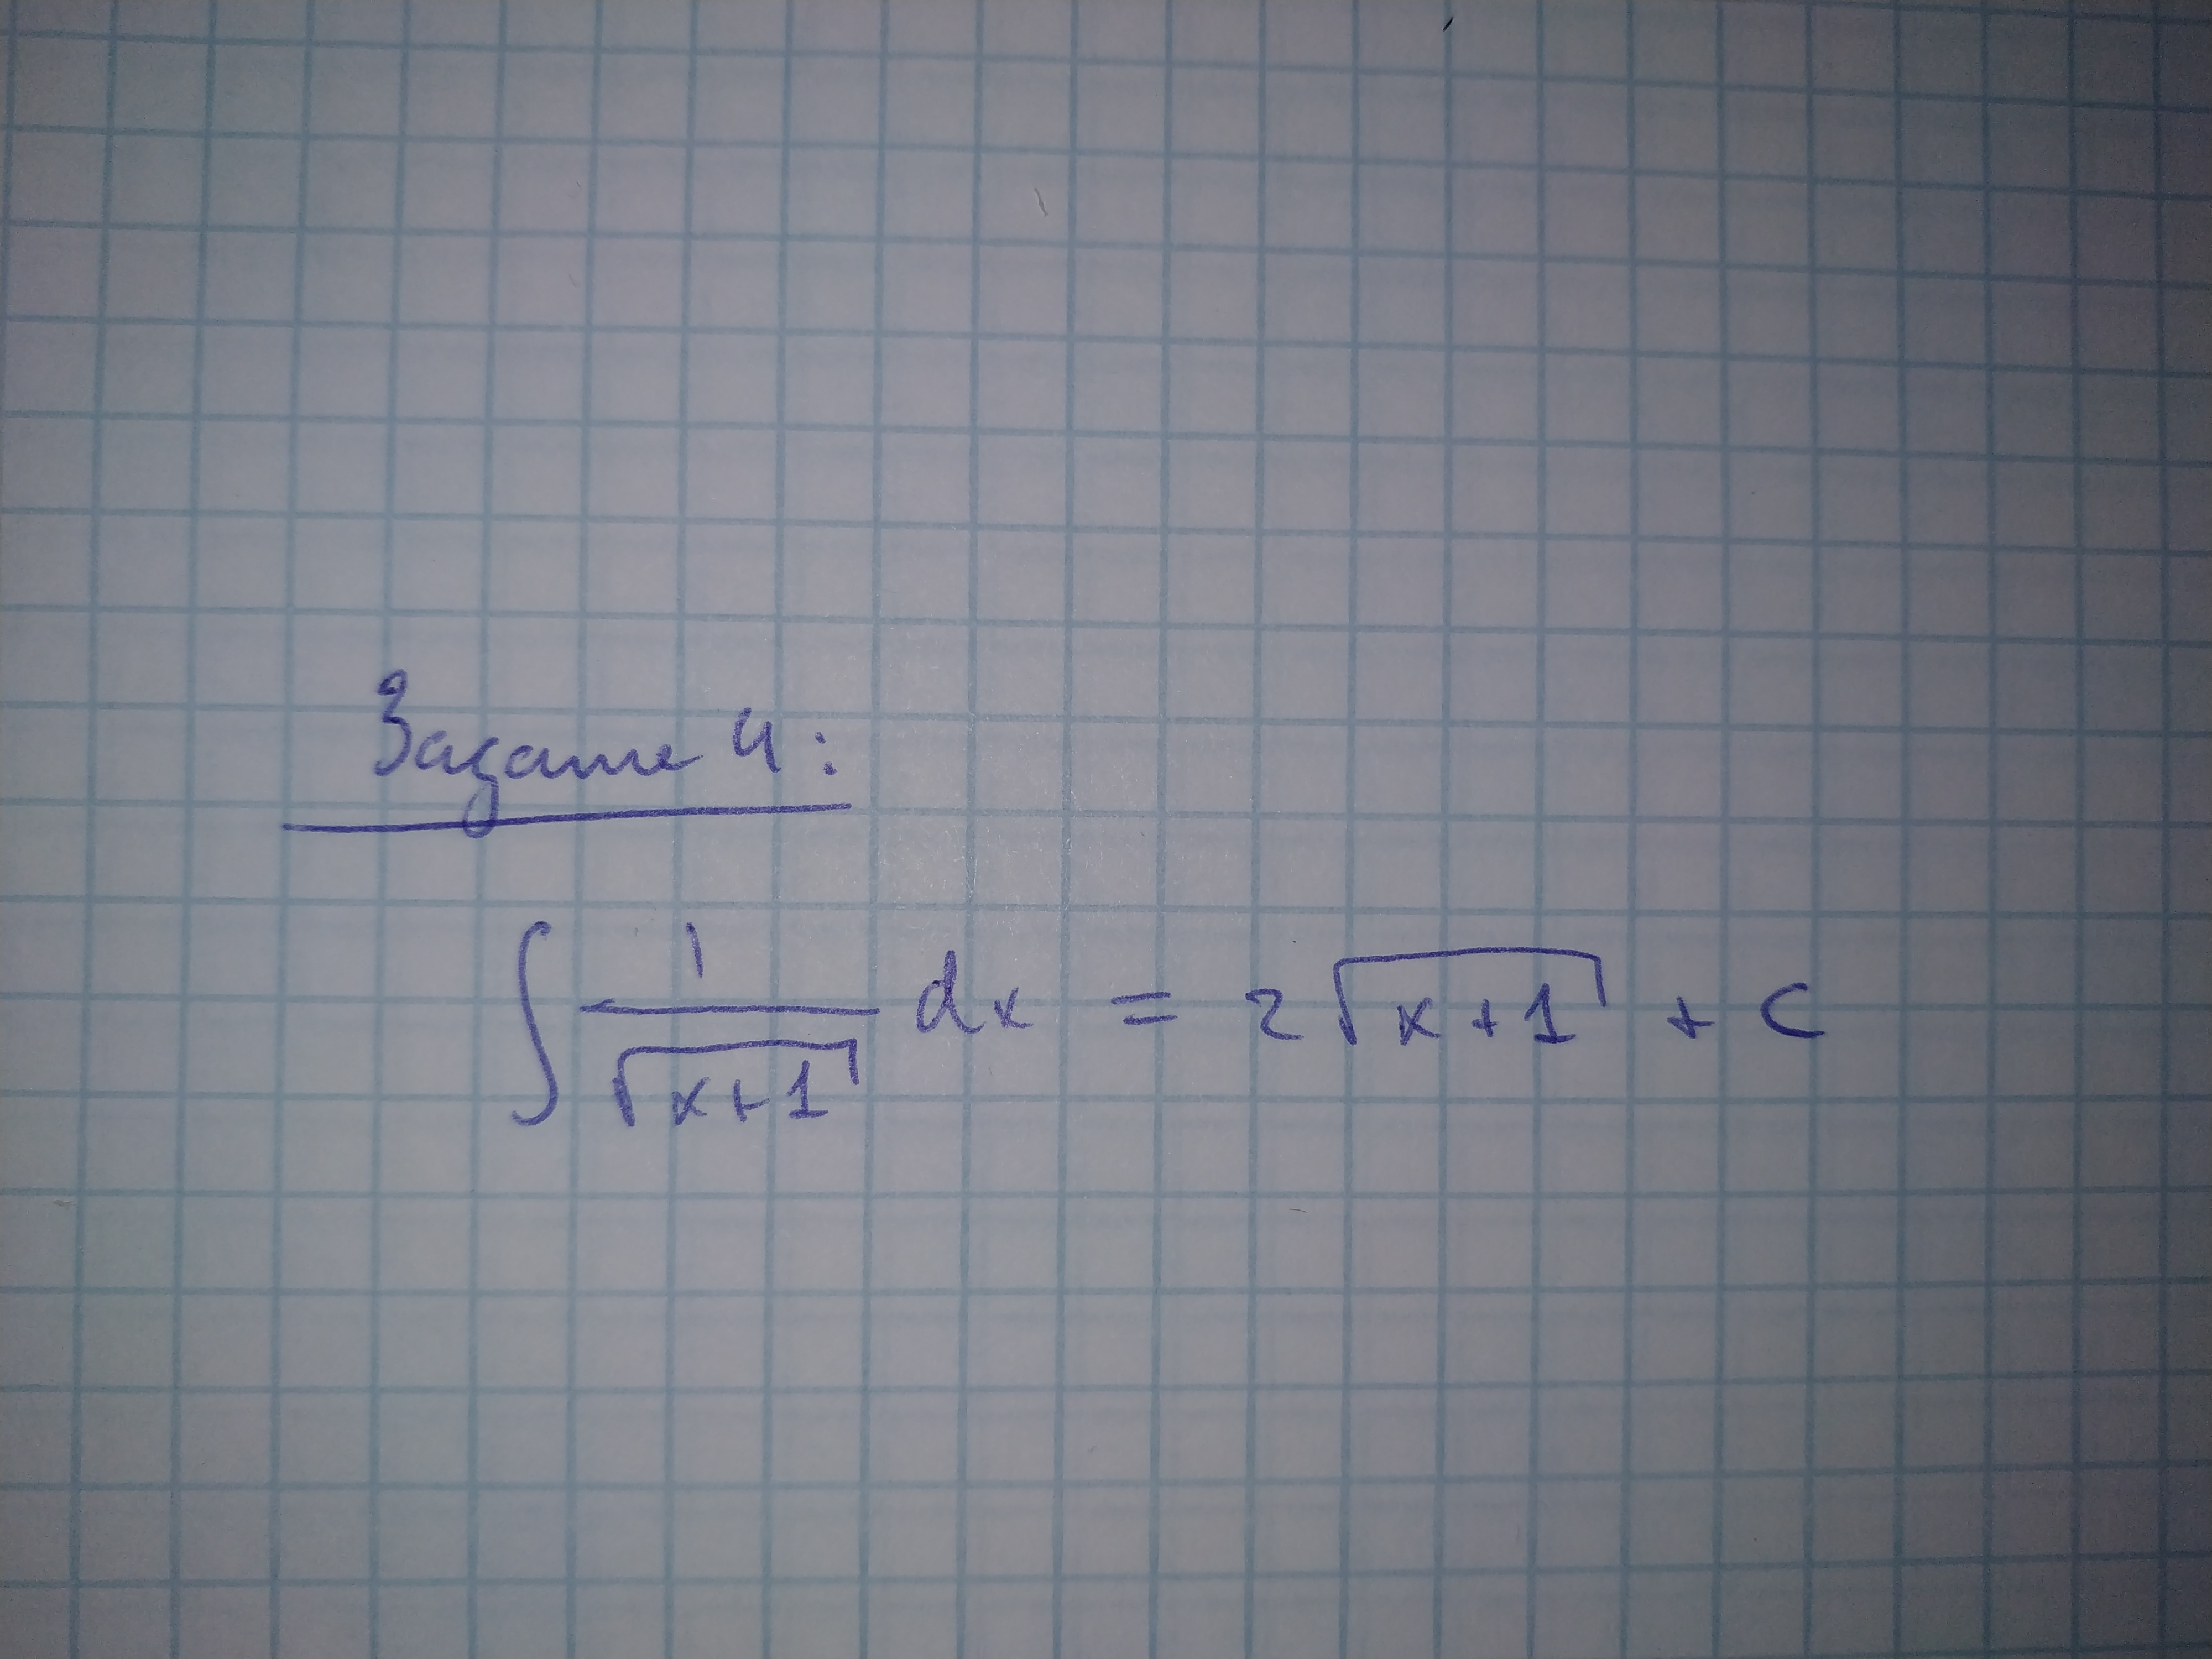 Задание 4:
∫ 1/√(x+1) dx = 2√(x+1) + c